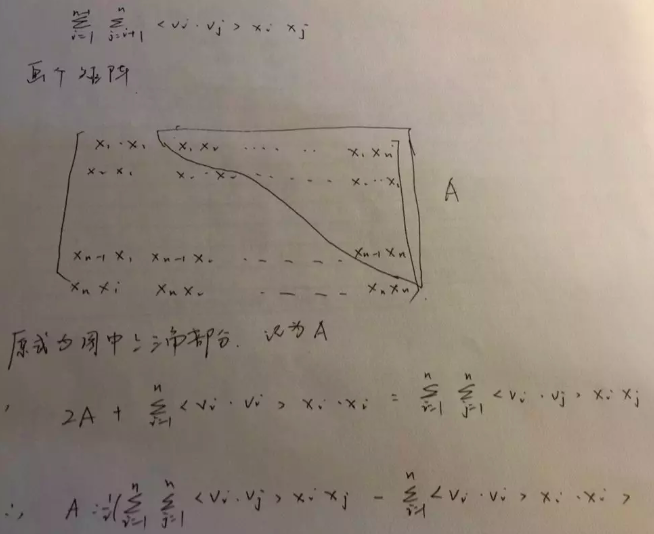 n-1 Σ i=1 n Σ j=i+1 < vi · vj > xi xj
画个矩阵
x1 · x1 x1 x2 ····· ·· x1 xn
x2 x1 x2 · x2 ···· - - - x2 ·· xn
A
xn-1 x1 xn-1 x2 - - - - - xn-1 xn
xn xi xn x2 - - - - xn xn
原式为图中上三角部分. 记为 A
2A + n Σ i=1 < vi · vi > xi · xi = n Σ i=1 n Σ j=1 < vi · vj > xi xj
∴ A = 1/2 ( n Σ i=1 n Σ j=1 < vi · vj > xi xj - n Σ i=1 < vi · vi > xi · xi >